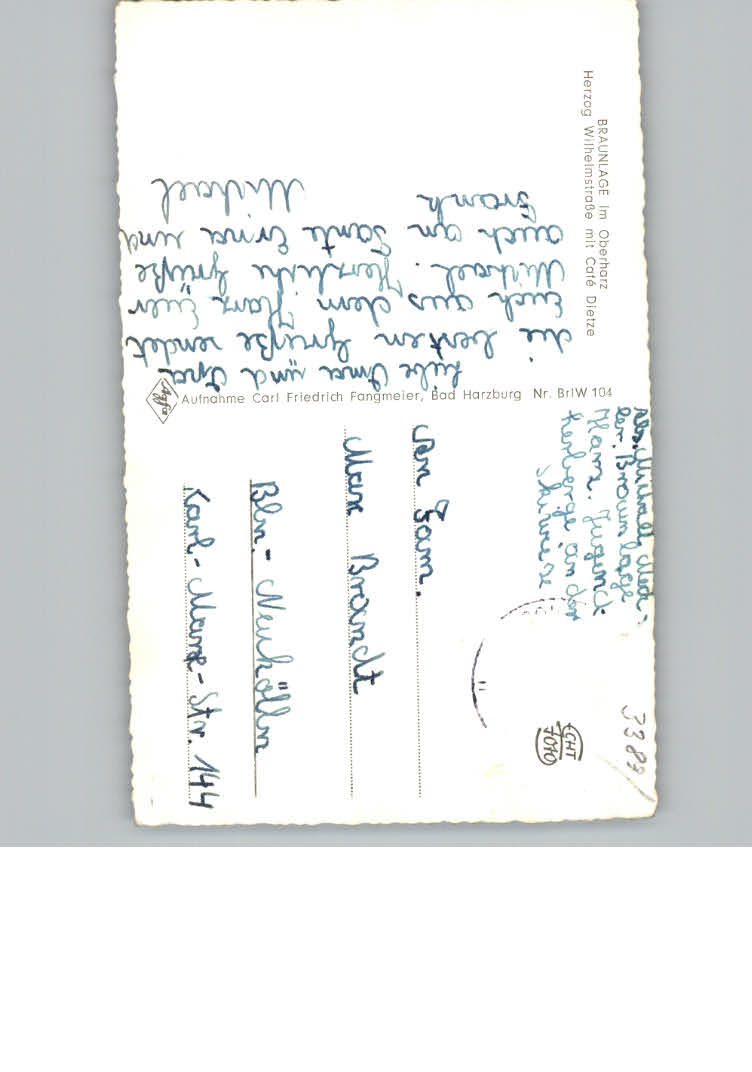 BRAUNLAGE im Oberharz
Herzog Wilhelmstraße mit Café Dietze
Liebe Oma und Opa
die besten Grüße sendet
Euch aus dem Harz Euer
Michael. Herzliche Grüße
auch an Tante Erna und
Frank Michael
Agfa
Aufnahme Carl Friedrich Fangmeier, Bad Harzburg Nr. BrIW 104
Abs. Michael
Braunlage
Harz. Jugend
herberge an der
Skiwiese
3383
ECHT
FOTO
An Fam.
Max Brandt
Bln.-Neukölln
Karl-Marx-Str. 144